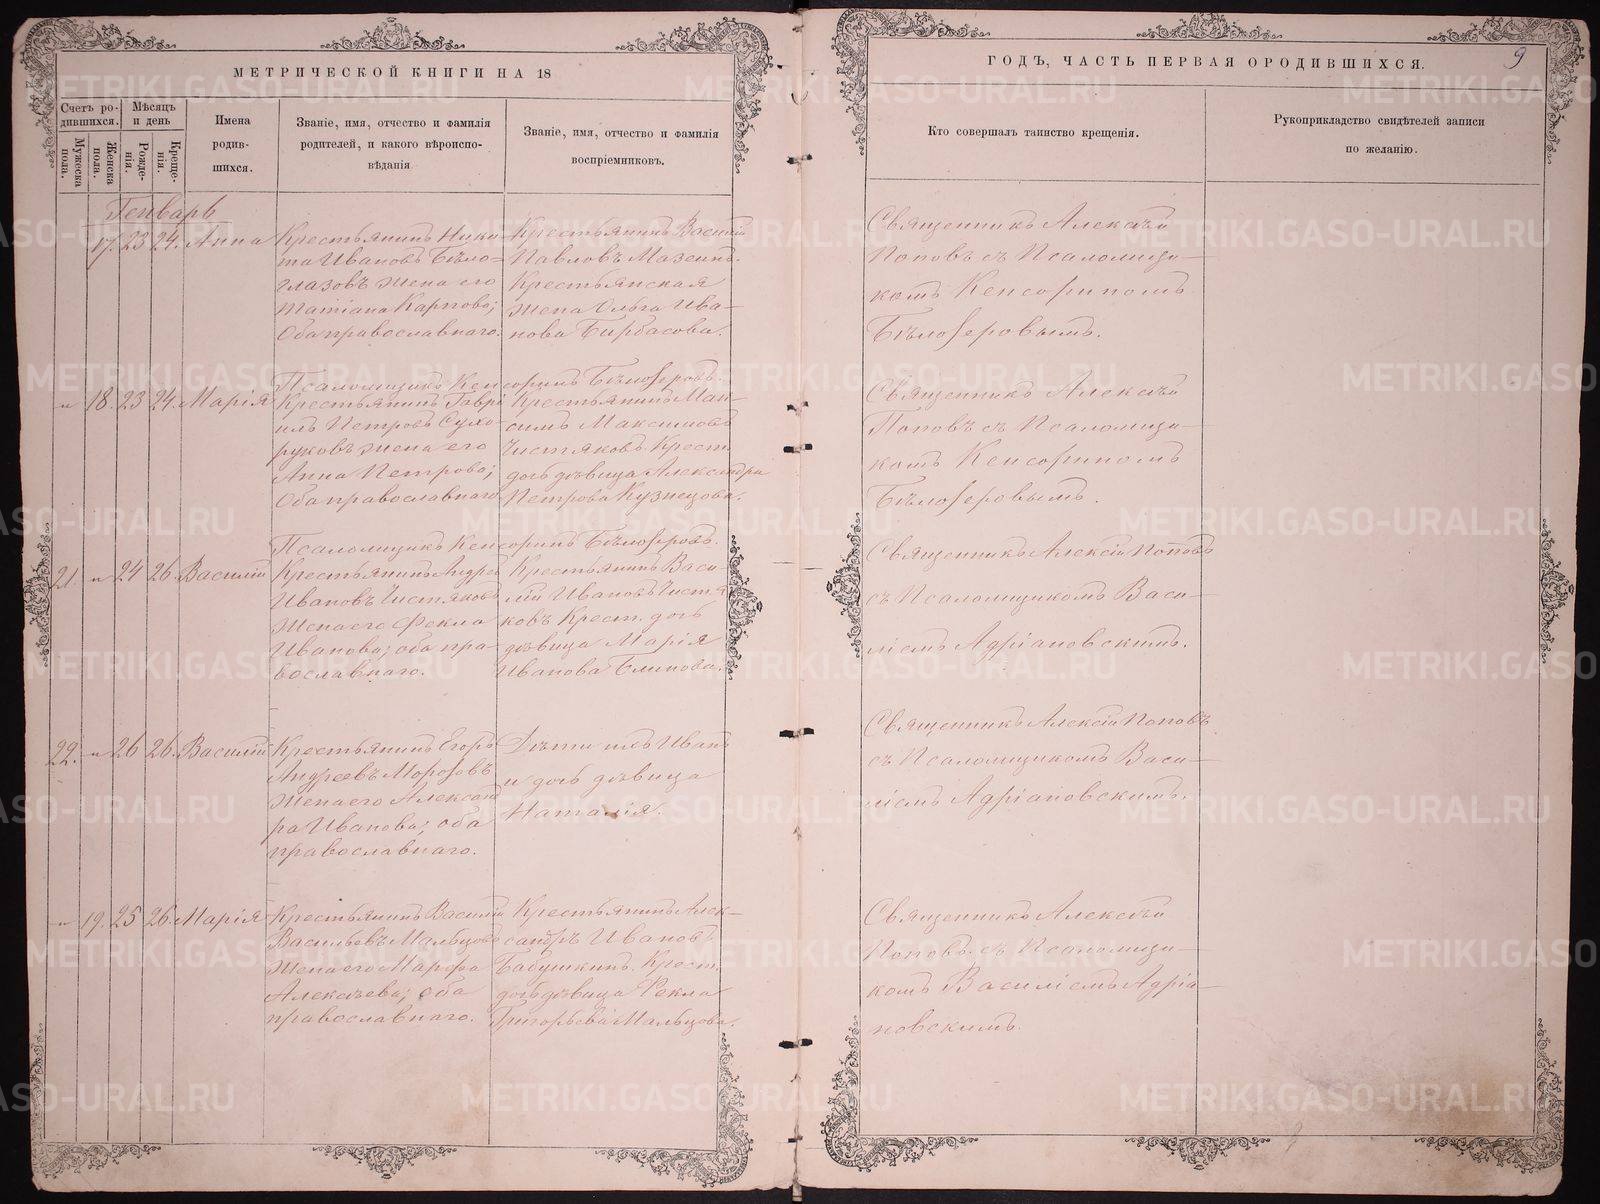 МЕТРИЧЕСКОЙ КНИГИ НА 18
ГОДЪ, ЧАСТЬ ПЕРВАЯ О РОДИВШИХСЯ.
9
Счетъ ро-
дившихся.
Мужеска
пола.
Женска
пола.
Мѣсяцъ
и день
Рожде-
нія.
Креще-
нія.
Имена
родив-
шихся.
Званіе, имя, отчество и фамилія
родителей, и какого вѣроиспо-
вѣданія
Званіе, имя, отчество и фамилія
воспріемниковъ.
Кто совершалъ таинство крещенія.
Рукоприкладство свидѣтелей записи
по желанію.
Генварь
17. 23 24. Анна
Крестьянинъ Ники-
та Ивановъ Бѣло-
глазовъ жена его
Татіана Карпова;
Оба православнаго.
Крестьянинъ Василій
Павловъ Мазеинъ.
Крестьянская
жена Ольга Ива-
нова Бирбасова.
Священникъ Алексѣй
Поповъ съ Псаломщи-
комъ Кенсориномъ
Бѣлозеровымъ.
Псаломщикъ Кенсоринъ Бѣлозеровъ.
" 18. 23 24. Марія
Крестьянинъ Гаврі
илъ Петровъ Сухо-
руковъ жена его
Анна Петрова;
Оба православнаго
Крестьянинъ Мак-
симъ Максимовъ
Чистяковъ. Крест.
дочь дѣвица Александра
Петрова Кузнецова.
Священникъ Алексѣй
Поповъ съ Псаломщи-
комъ Кенсориномъ
Бѣлозеровымъ.
Псаломщикъ Кенсоринъ Бѣлозеровъ.
21. " 24 26 Василій
Крестьянинъ Андрей
Ивановъ Чистяковъ
Жена его Фекла
Иванова; оба пра-
вославнаго.
Крестьянинъ Васи-
лій Ивановъ Чистя
ковъ Крест. дочь
дѣвица Марія
Иванова Блинова.
Священникъ Алексій Поповъ
съ Псаломщикомъ Васи-
ліемъ Адріановскимъ.
22. " 26 26. Василій
Крестьянинъ Егоръ
Андреевъ Морозовъ
жена его Алексан
ра Иванова; оба
православнаго.
Дѣти ихъ Иванъ
и дочь дѣвица
Наталія.
Священникъ Алексій Поповъ
съ Псаломщикомъ Васи-
ліемъ Адріановскимъ.
" 19. 25 26. Марія
Крестьянинъ Василій
Васильевъ Мальцовъ
жена его Марфа
Алексѣева; оба
православнаго.
Крестьянинъ Алек-
сандръ Ивановъ
Бабушкинъ. Крест.
дочь дѣвица Фекла
Григорьева Мальцова.
Священникъ Алексѣй
Поповъ съ Псаломщи-
комъ Василіемъ Адріа-
новскимъ.
METRIKI.GASO-URAL.RU